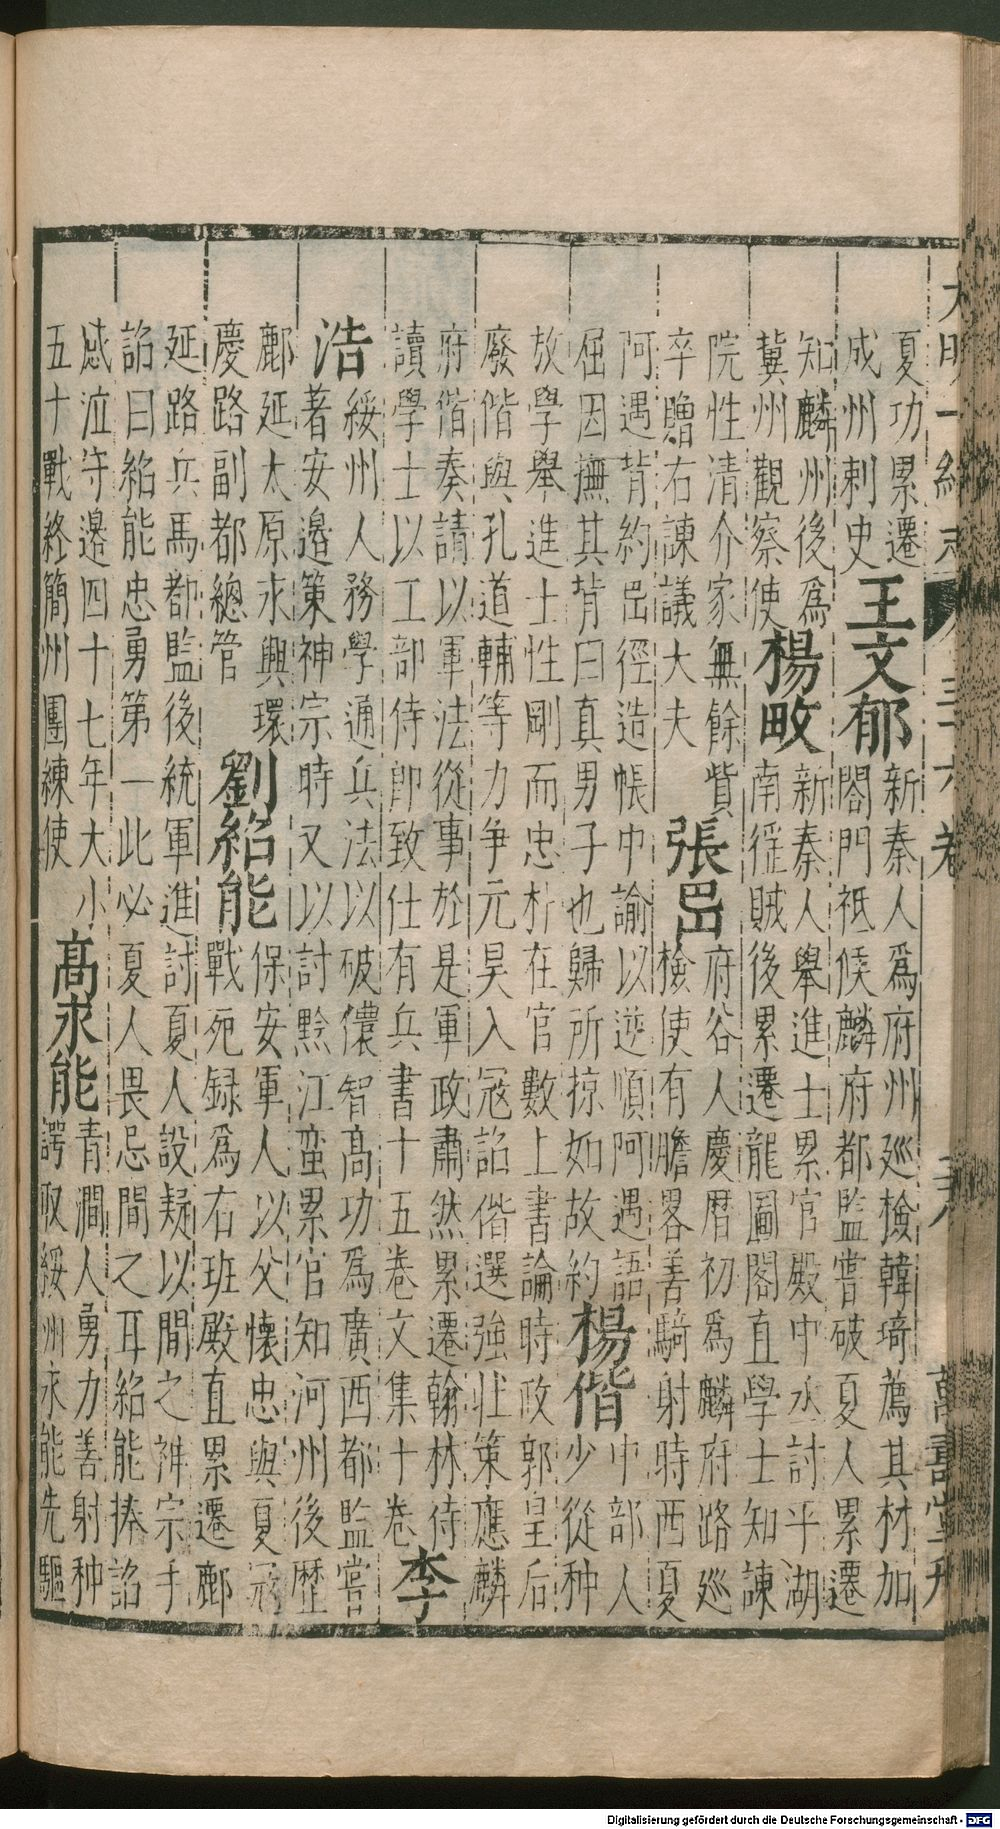 大明一統志 三十六卷 三八 萬壽堂刋
夏功累遷
成州刺史
王文郁
新秦人爲府州巡檢韓琦薦其材加
閤門祗候麟府都監嘗破夏人累遷
知麟州後爲
冀州觀察使
楊畋
新秦人舉進士累官殿中丞討平湖
南徭賊後累遷龍圖閣直學士知諫
院性清介家無餘貲
卒贈右諫議大夫
張岊
府谷人慶曆初爲麟府路巡
檢使有膽畧善騎射時西夏
阿遇背約岊徑造帳中諭以逆順阿遇語
屈因撫其背曰真男子也歸所掠如故約
楊偕
中部人
少從种
放學舉進士性剛而忠朴在官數上書論時政郭皇后
廢偕與孔道輔等力爭元昊入冦詔偕選強壯策應麟
府偕奏請以軍法從事於是軍政肅然累遷翰林侍
讀學士以工部侍郎致仕有兵書十五卷文集十卷
李
浩
綏州人務學通兵法以破儂智高功爲廣西都監嘗
著安邊策神宗時又以討黔江蛮累官知河州後歷
鄜延太原永興環
慶路副都總管
劉紹能
保安軍人以父懷忠與夏冦
戰死録爲右班殿直累遷鄜
延路兵馬都監後統軍進討夏人設疑以間之神宗手
詔曰紹能忠勇第一此必夏人畏忌間之耳紹能捧詔
感泣守邊四十七年大小
五十戰終簡州團練使
高永能
青澗人勇力善射种
諤取綏州永能先驅
Digitalisierung gefördert durch die Deutsche Forschungsgemeinschaft - DFG